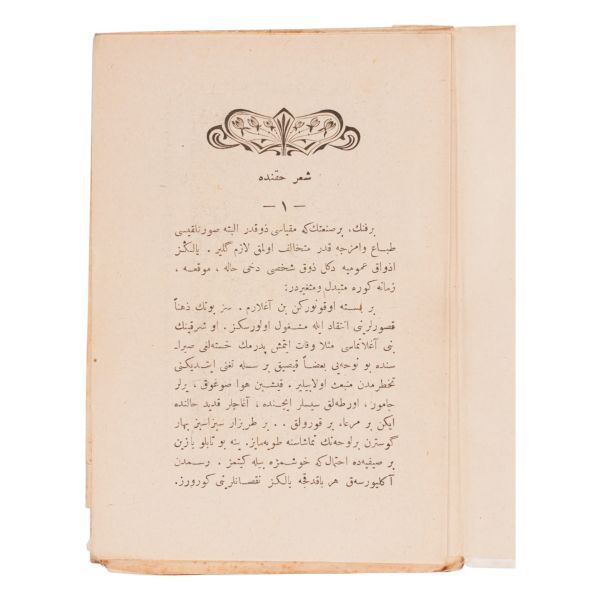 شعر حقنده
— ١ —
برفنك، بر صنعتك كه مقياسى ذوقدر البته صور تلقيسى
طبايع وامزجه قدر متخالف اولمق لازم كلير . يالكز
اذواق عموميه دكل ذوق شخصى دخى حاله ، موقعه ،
زمانه كوره متبدل ومتغيردر:
بر بسته اوقونوركن بن آغلارم . سز بونك ذهناً
قصورلرنى انتقاد ايله مشغول اولورسكز . او شرقينك
بنى آغلاتماسى مثلا وفات ايتمش پدرمك خسته‌لغى صيرا-
سنده بو نوحه‌يى بعضاً قيصيق بر سسله تغنى ايتديكنى
تخطرمدن منبعث اولابيلير . قيشين هوا صوغوق ، يرلر
چامور ، اورطه‌لق سيسلر ايچنده ، آغاچلر قديد حالنده
ايكن بر مرعا، بر قورولق . . بر طربزار سبزاسبز بهار
كوسترن بر لوحه‌نك تماشاسنه طويه‌مايز. ينه بو تابلو يازين
بر صيفيه‌ده احتمال كه خوشمزه بيله كيتمز . رسمدن
آكليورسه‌ق هر باقدقجه يالكز نقصانلرينى كورورز.